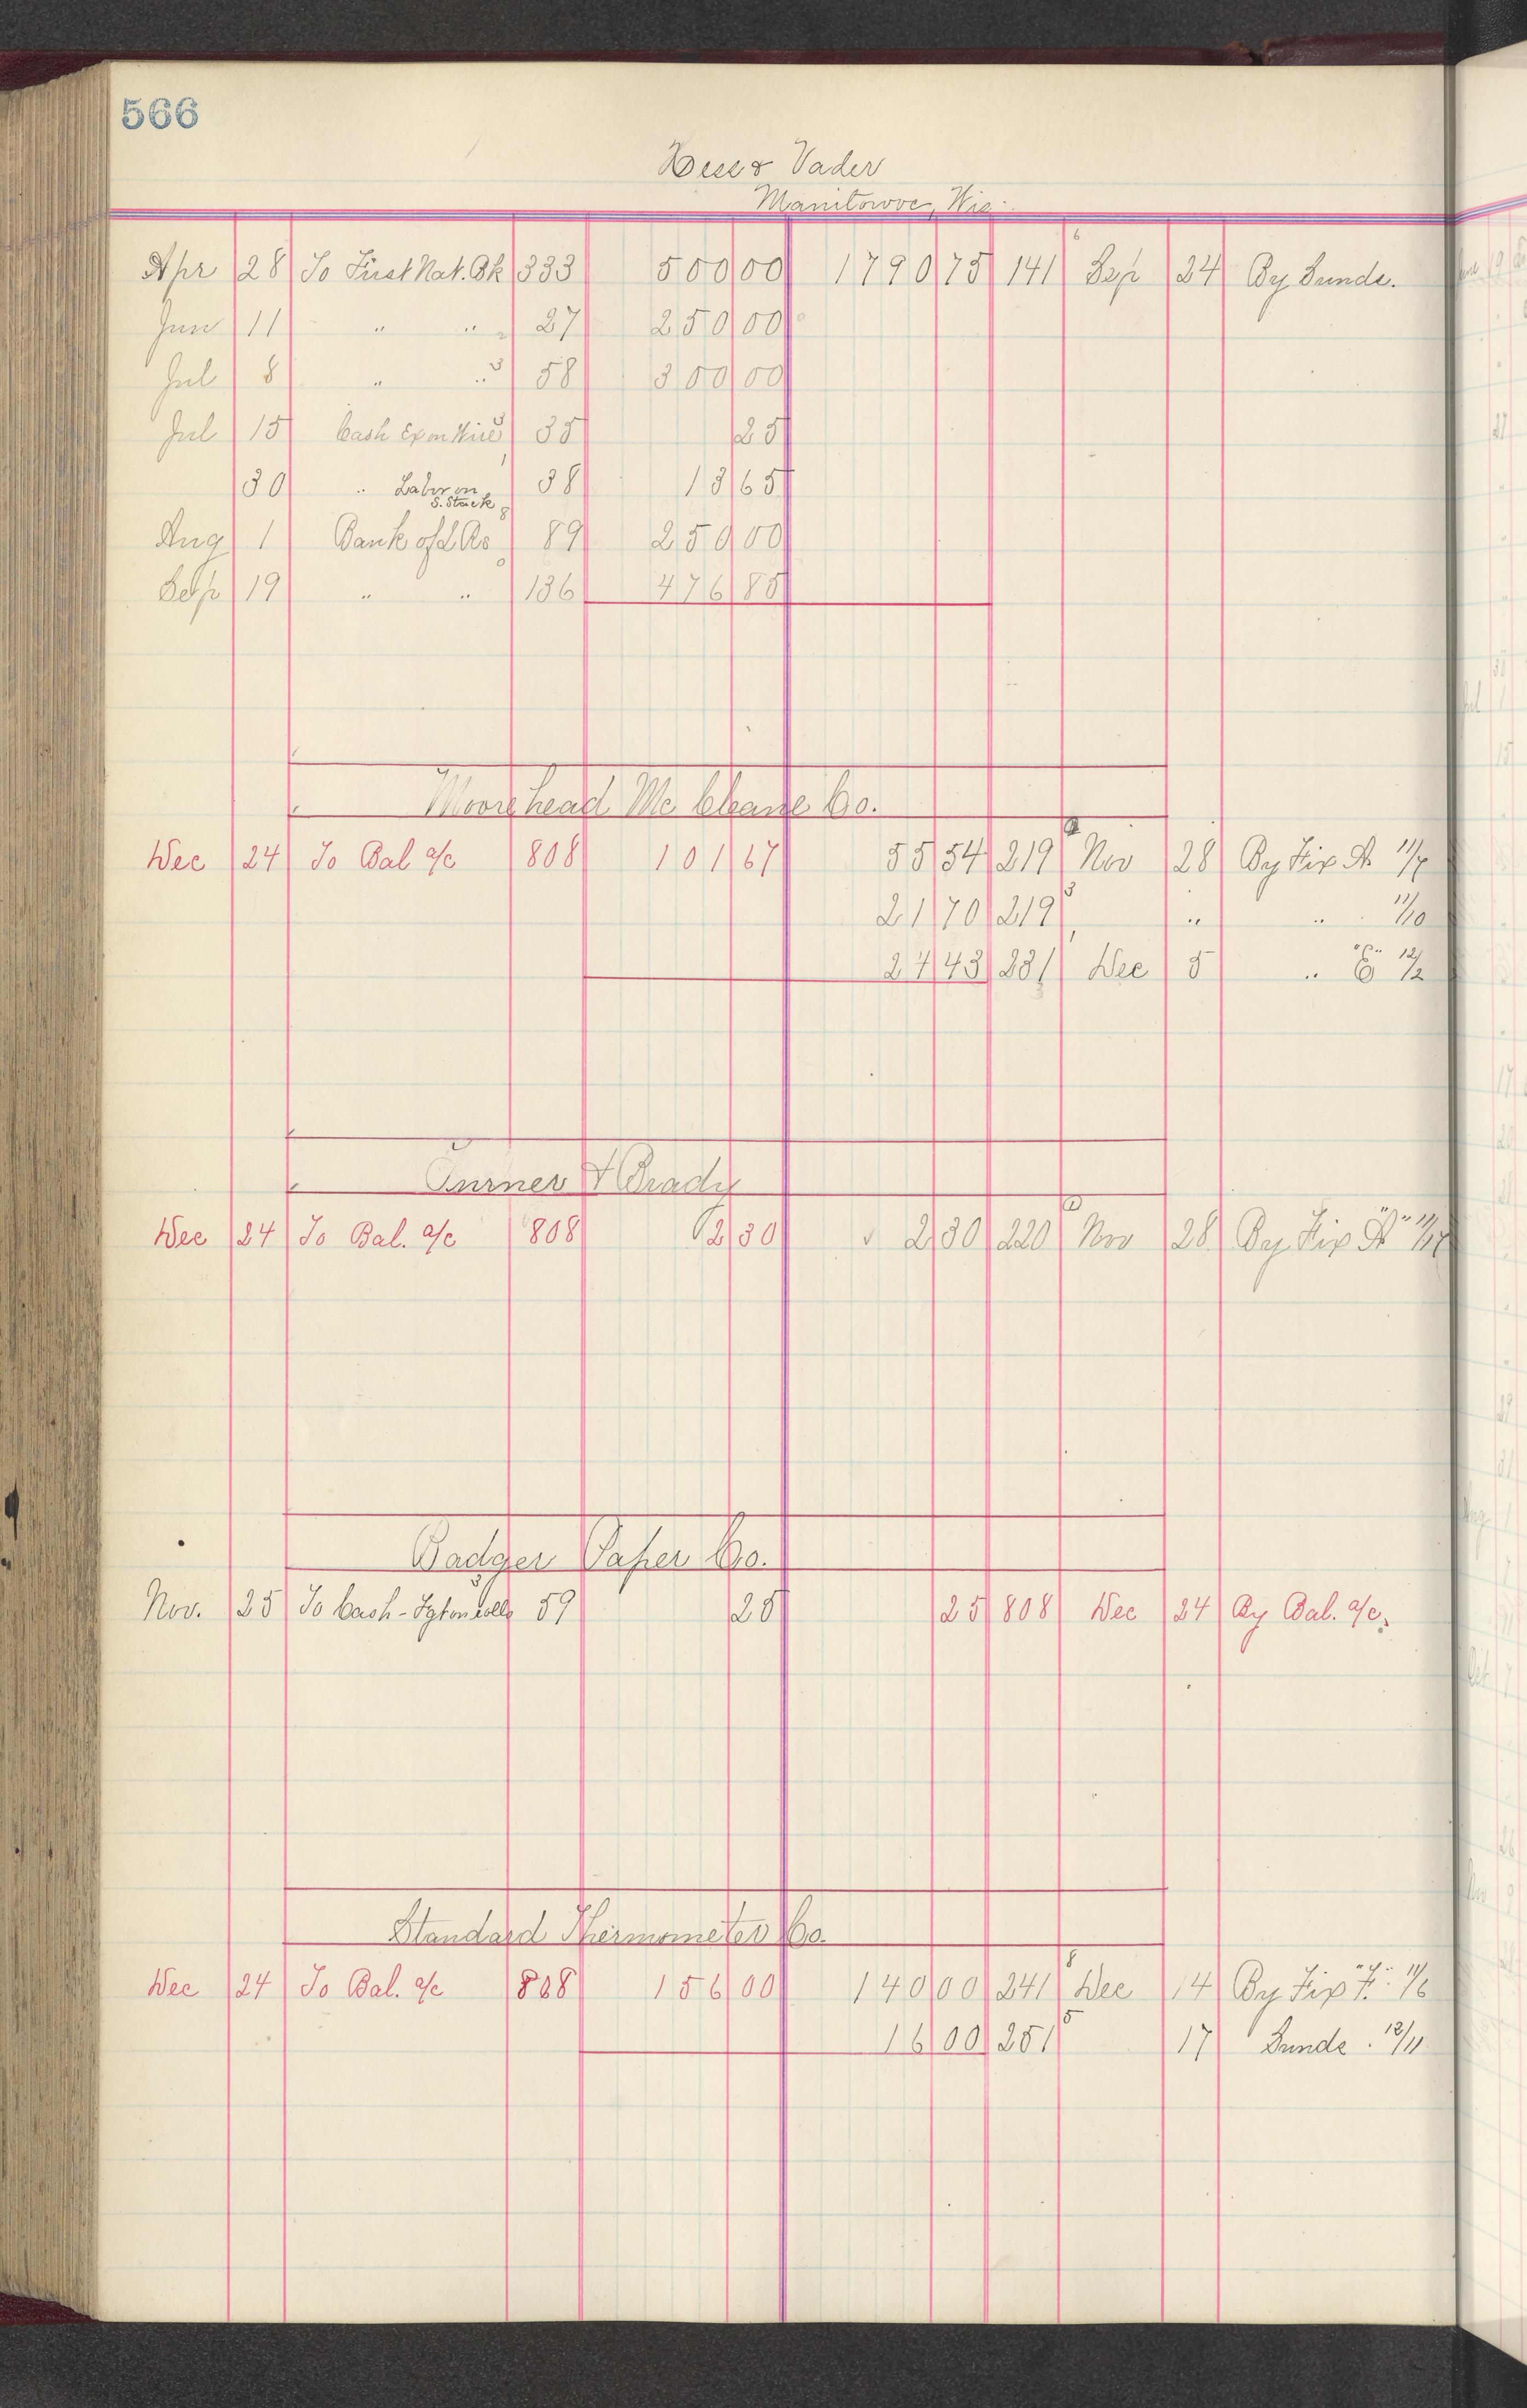 566
Hess & Vader
Manitowoc, Wis.
Apr 28 To First Nat. Bk 333 500 00 1790 75 141 6 Sep 24 By Sunds.
Jun 11 " " 27 250 00
Jul 8 " " 3 58 300 00
Jul 15 Cash Ex on Wire 3 35 25
30 " Labor on 38 13 65
S. Stack
Aug 1 Bank of 8 89 250 00
Sep 19 " " 136 476 85
Moorehead Mc Cleane Co.
Dec 24 To Bal a/c 808 101 67 55 54 219 Nov 28 By Fix A 11/7
21 70 219 3 " " 11/10
24 43 231 Dec 5 " "C" 12/2
Turner & Brady
Dec 24 To Bal. a/c 808 2 30 2 30 220 Nov 28 By Fix "A" 11/17
Badger Paper Co.
Nov. 25 To Cash - 59 25 25 808 Dec 24 By Bal. a/c.
Standard Thermometer Co.
Dec 24 To Bal. a/c 808 156 00 140 00 241 8 Dec 14 By Fix "F" 11/6
16 00 251 5 17 Sunds. 12/11